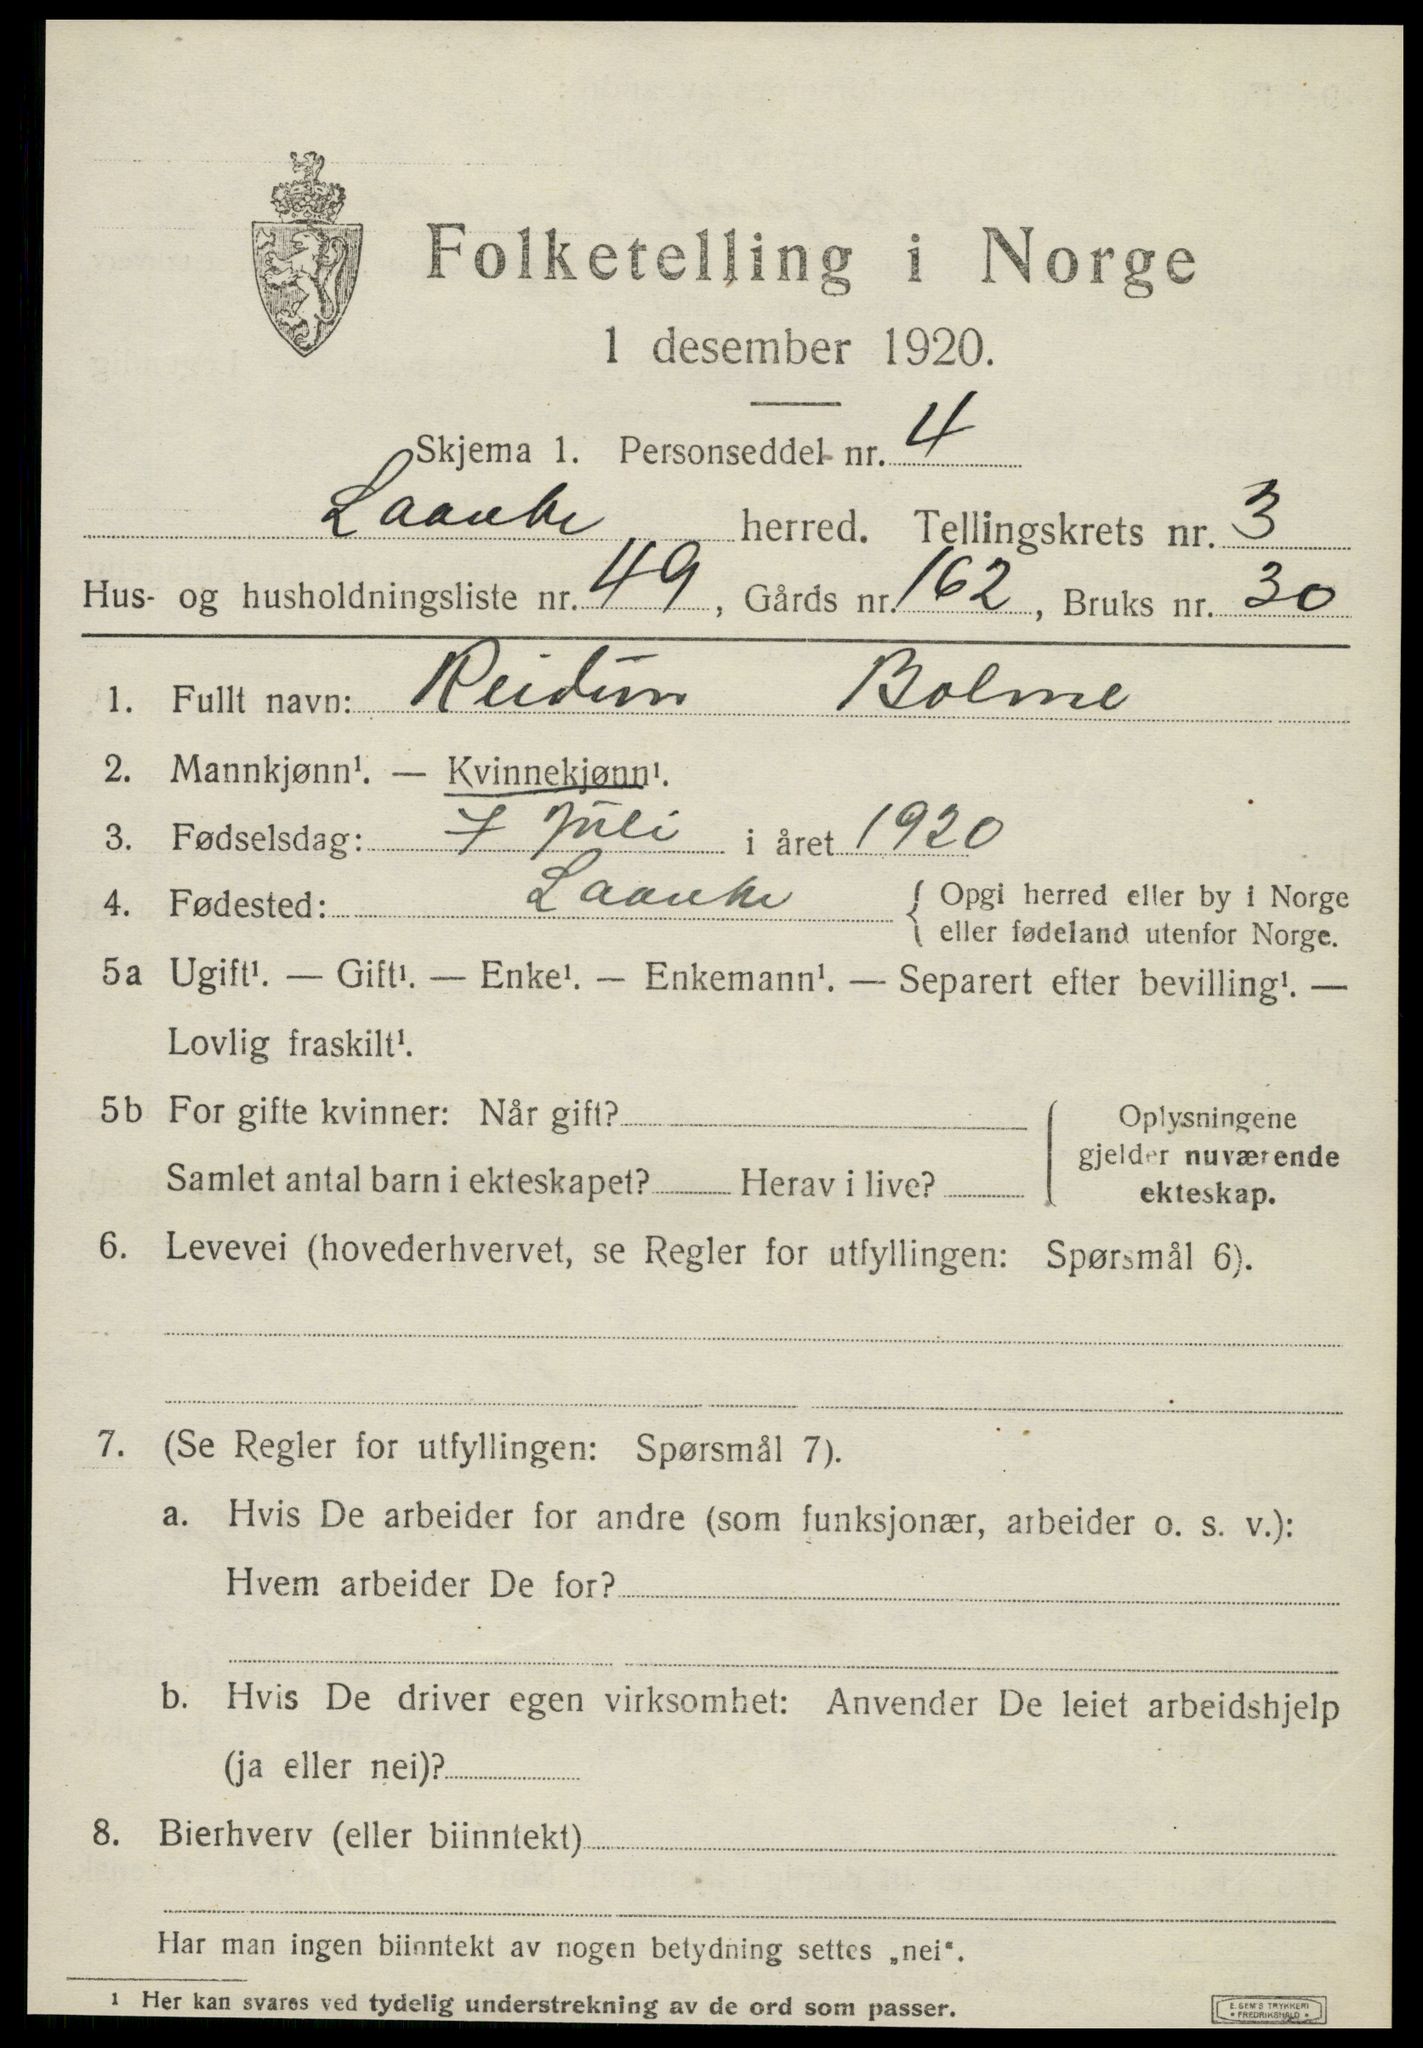 Folketelling i Norge
1 desember 1920.
Skjema 1. Personseddel nr. 4
Laanke herred. Tellingskrets nr. 3
Hus- og husholdningsliste nr. 49, Gårds nr. 162, Bruks nr. 30
1. Fullt navn: Reidun Bolme
2. Mannkjønn¹. — Kvinnekjønn¹.
3. Fødselsdag: 7 Juli i året 1920
4. Fødested: Laanke { Opgi herred eller by i Norge
eller fødeland utenfor Norge.
5a Ugift¹. — Gift¹. — Enke¹. — Enkemann¹. — Separert efter bevilling¹. —
Lovlig fraskilt¹.
5b For gifte kvinner: Når gift?
Samlet antal barn i ekteskapet? Herav i live?
Oplysningene
gjelder nuværende
ekteskap.
6. Levevei (hovederhvervet, se Regler for utfyllingen: Spørsmål 6).
7. (Se Regler for utfyllingen: Spørsmål 7).
a. Hvis De arbeider for andre (som funksjonær, arbeider o. s. v.):
Hvem arbeider De for?
b. Hvis De driver egen virksomhet: Anvender De leiet arbeidshjelp
(ja eller nei)?
8. Bierhverv (eller biinntekt)
Har man ingen biinntekt av nogen betydning settes „nei“.
¹ Her kan svares ved tydelig understrekning av de ord som passer.
E. SEM'S TRYKKERI
• FREDRIKSHALD •